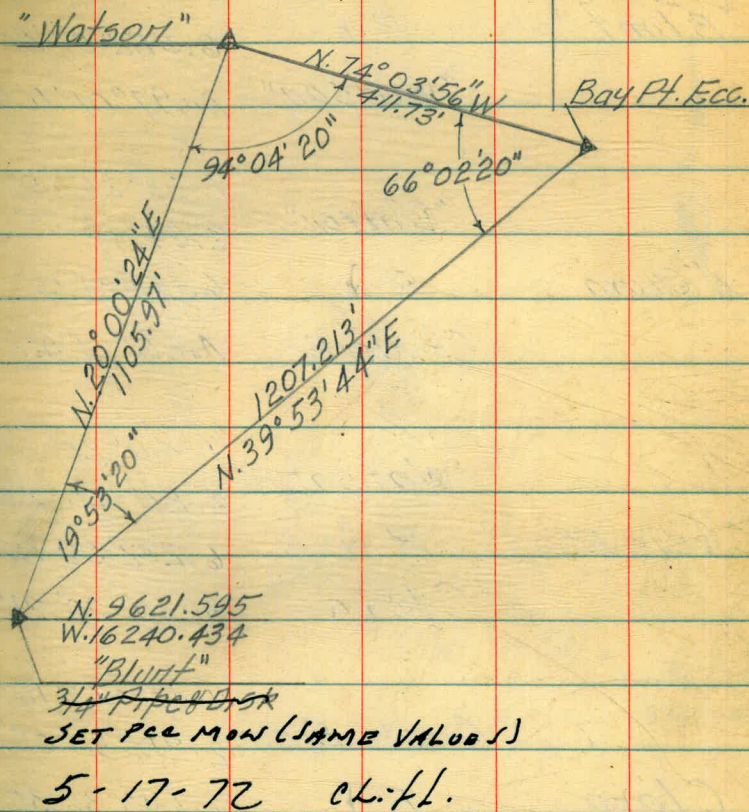 "Watson"
N. 74° 03' 56" W
411.73'
Bay Pt. Ecc.
94° 04' 20"
66° 02' 20"
N. 20° 00' 24" E
1105.97'
1207.213'
N. 39° 53' 44" E
19° 53' 20"
N. 9621.595
W. 16240.434
"Blunt"
3/4" Pipe & Disk
SET PCC MON (SAME VALUES)
5-17-72 Cliff.